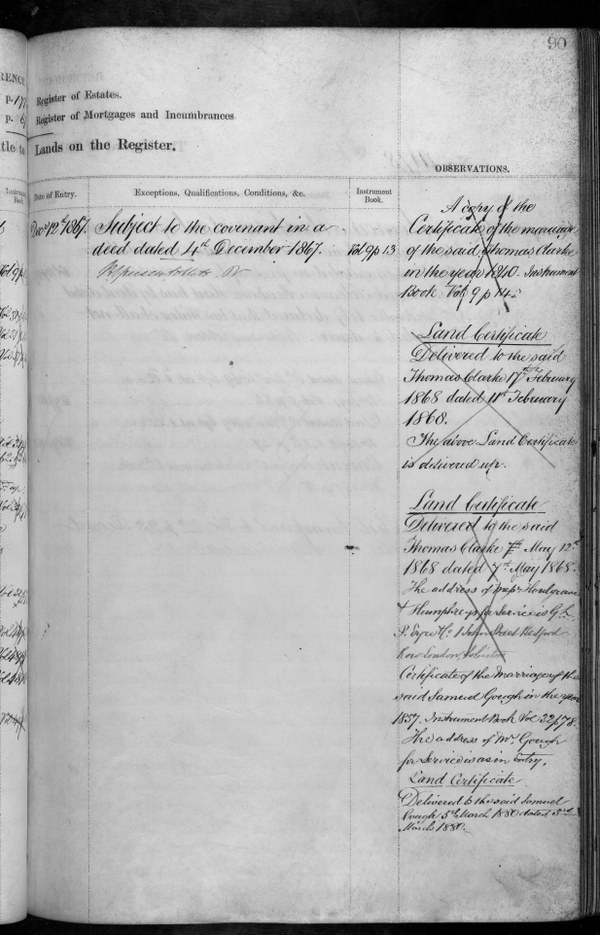 90
RENCE
p. 17
p. 6
tle to
Register of Estates.
Register of Mortgages and Incumbrances
Lands on the Register.
OBSERVATIONS.
Instrument Book.
Date of Entry.
Exceptions, Qualifications, Conditions, &c.
Instrument Book.
Decr 12th 1867.
Subject to the covenant in a
deed dated 4th December 1867.
Vol 9 p 13
A copy of the
Certificate of the marriage
of the said Thomas Clarke
in the year 1840. Instrument
Book Vol 9 p 14.
Land Certificate
Delivered to the said
Thomas Clarke 17th February
1868 dated 11th February
1868.
The above Land Certificate
is delivered up.
Land Certificate
Delivered to the said
Thomas Clarke May 12th
1868 dated 7th May 1868.
The address of
& Humphreys for Service is G. L.
P. Eyre & Co 1 John Street Bedford
Row London, Solicitors
Certificate of the Marriage of the
said Samuel Gough in the year
1857. Instrument Book Vol 22 p 78.
The address of Mr. Gough
for Service is as in Entry.
Land Certificate
Delivered to the said Samuel
Gough 5th March 1880 dated 3rd
March 1880.